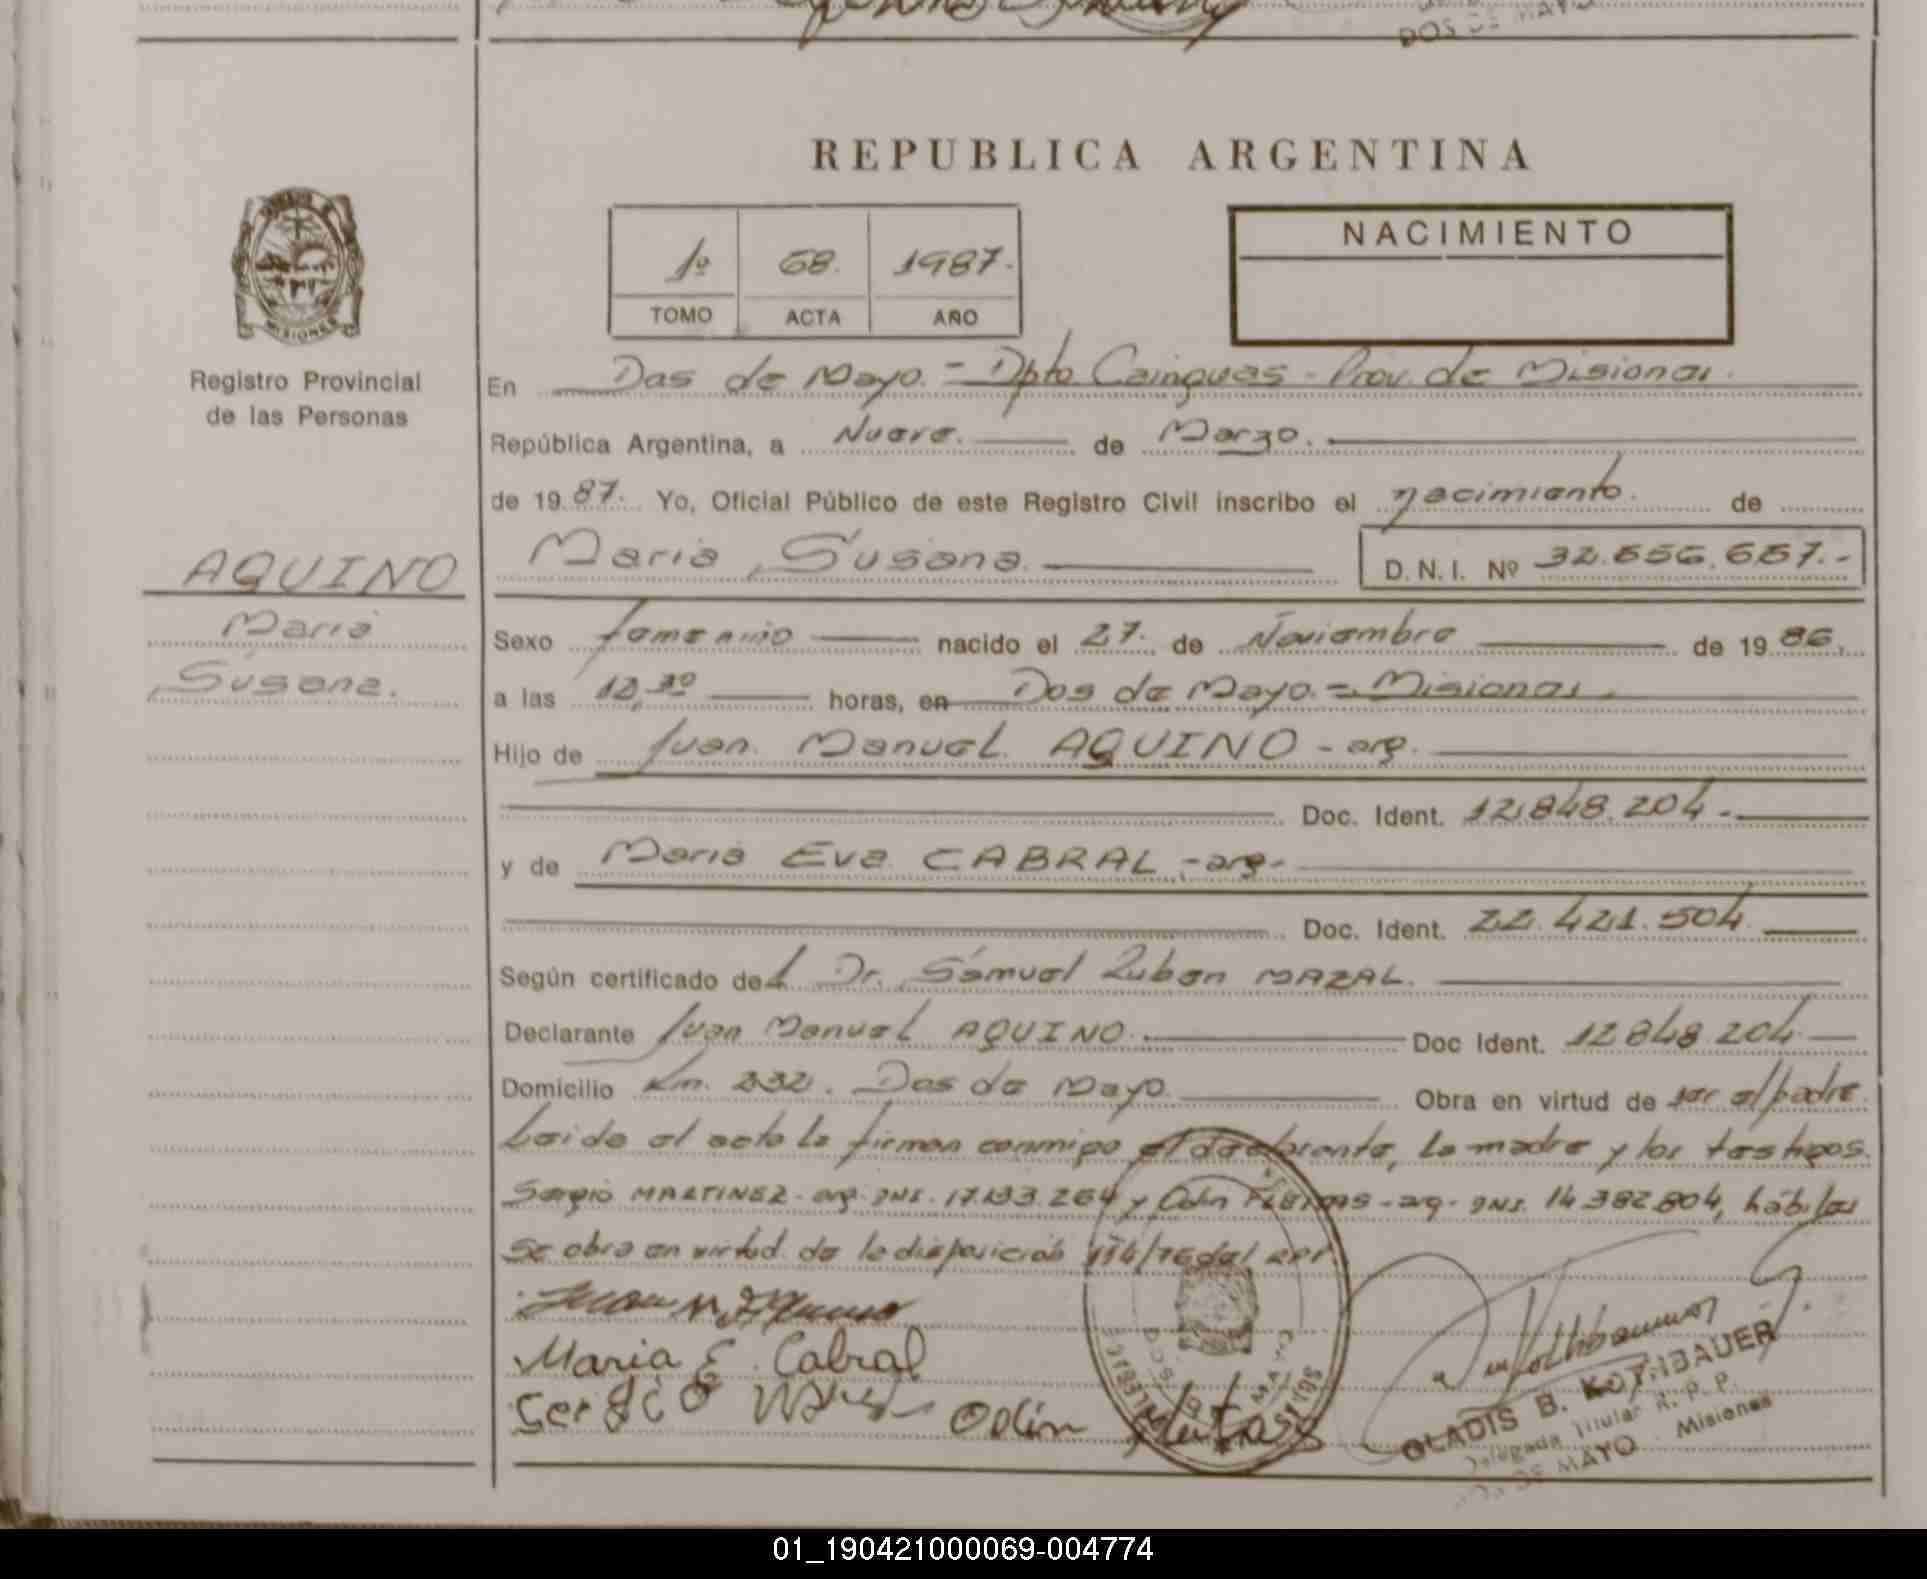 DOS DE MAYO
REPUBLICA ARGENTINA
MISIONES
Registro Provincial
de las Personas
1º 68. 1987.
TOMO ACTA AÑO
NACIMIENTO
En Dos de Mayo.- Dpto Cainguas - Prov. de Misiones.
República Argentina, a Nueve. de Marzo.
de 19 87. Yo, Oficial Público de este Registro Civil inscribo el nacimiento. de
Maria Susana. D. N. I. Nº 32.656.657.-
AQUINO
Maria
Susana.
Sexo femenino nacido el 27. de Noviembre de 19 86.
a las 12,30 horas, en Dos de Mayo.- Misiones.
Hijo de Juan Manuel AQUINO - arg.
Doc. Ident. 12.848.204.-
y de Maria Eva CABRAL.- arg-
Doc. Ident. 22.421.504
Según certificado del Dr. Samuel Ruben MAZAL.
Declarante Juan Manuel AQUINO. Doc Ident. 12.848.204
Domicilio Km. 232. Dos de Mayo. Obra en virtud de ser el padre.
Leida el acta la firman conmigo el declarante, la madre y los testigos.
Sergio MARTINEZ - arg. DNI. 17.133.264 y Odin - arg - DNI. 14.382.804, hábiles
se obra en virtud de la disposición 114/76 del RPP.
Maria E. Cabral
Sergio
Odin
GLADIS B. KOTHBAUER
Delegada Titular R. P. P.
DOS DE MAYO - Misiones
01_190421000069-004774